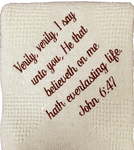 Verily, verily, I say
unto you, He that
believeth on me
hath everlasting life.
John 6:47